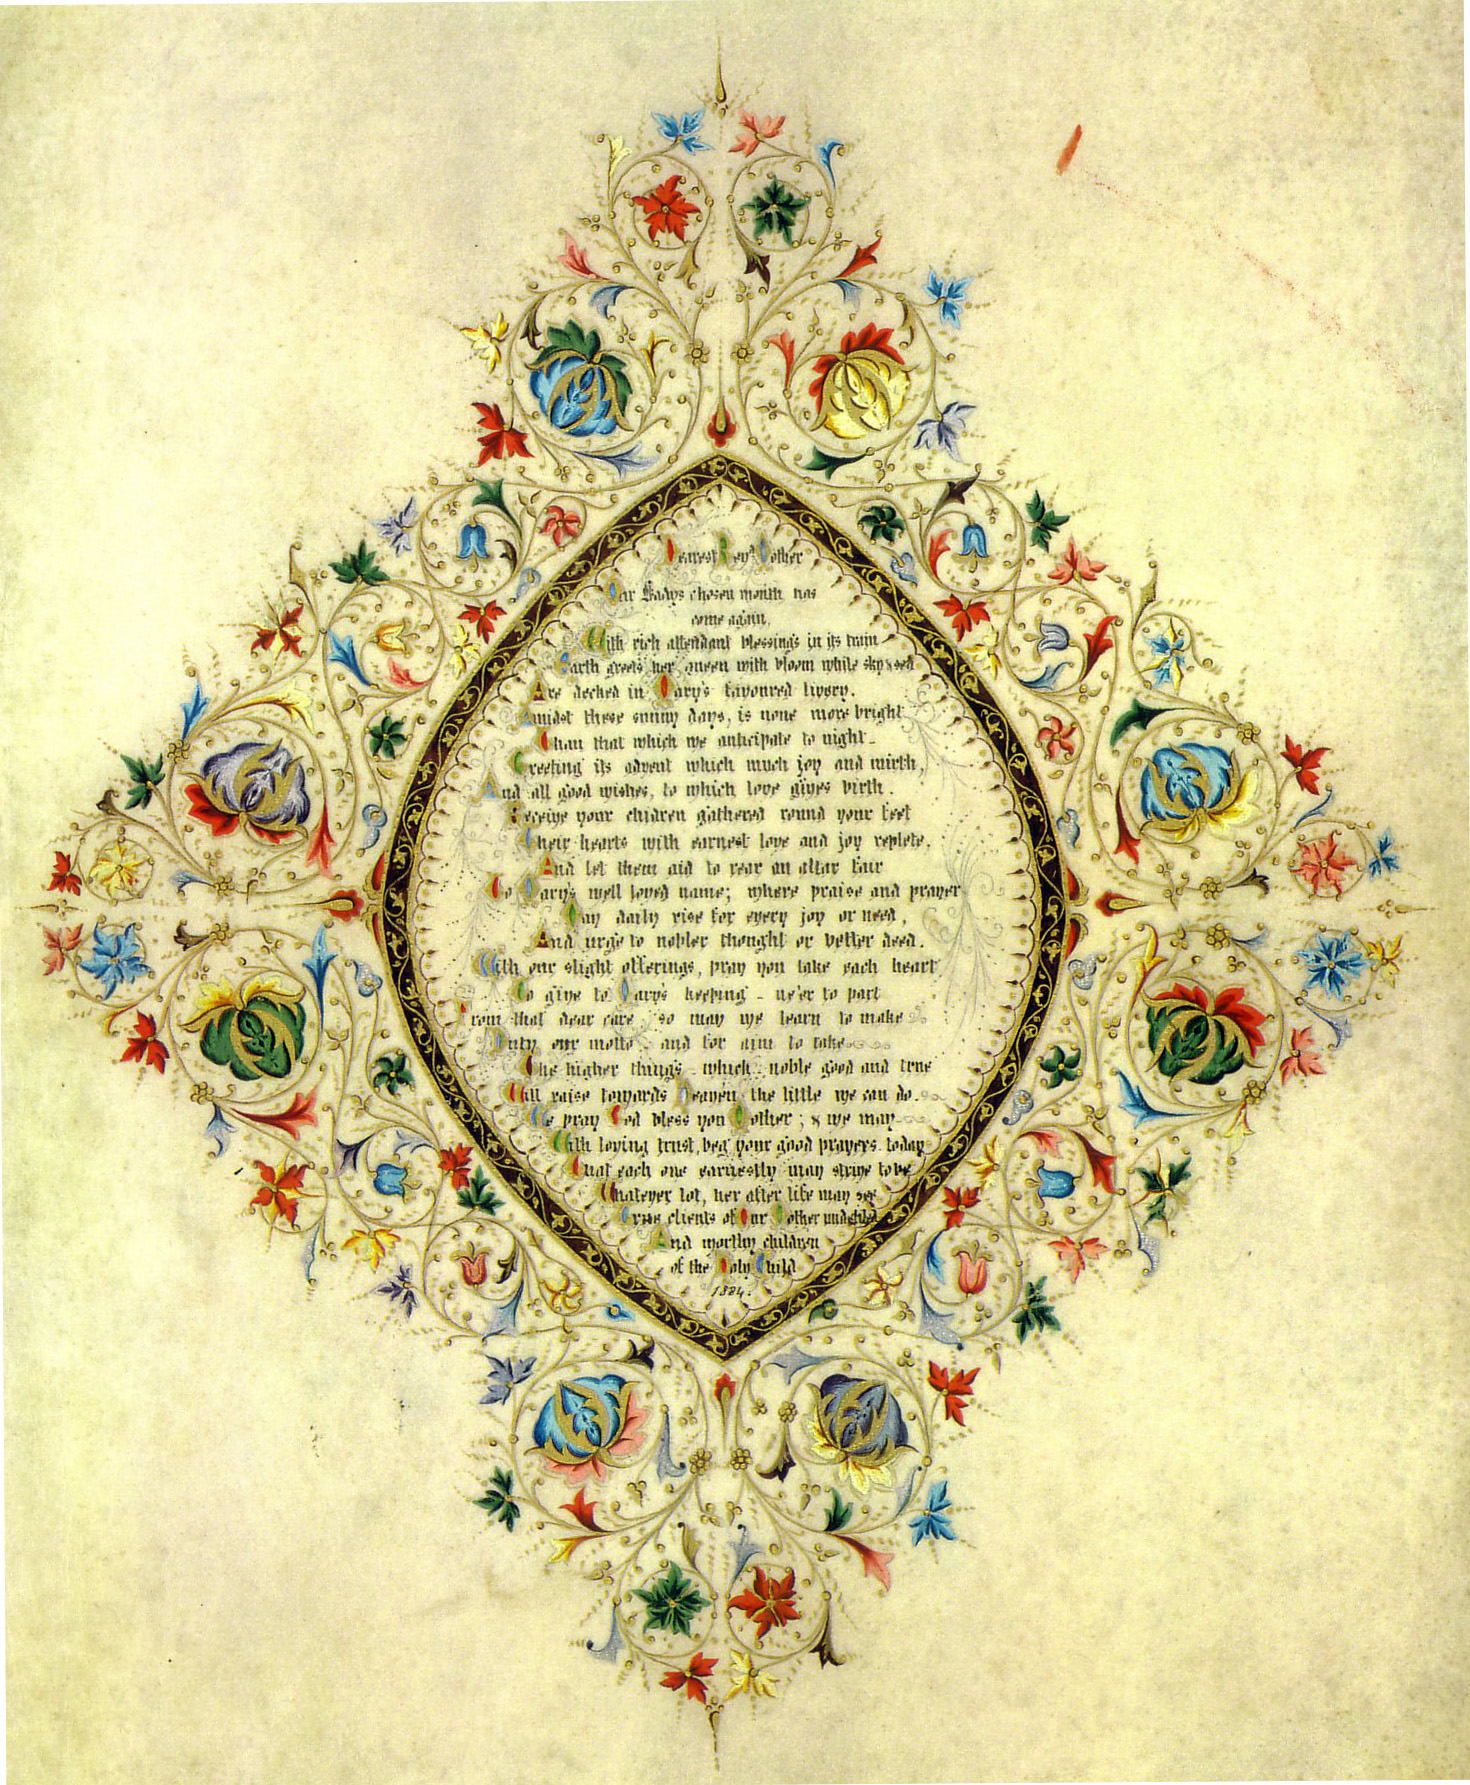 Dearest Revd Mother
Our Ladys chosen month has
come again,
With rich attendant blessings in its train
Earth greets her queen with bloom while sky & sea
Are decked in Mary's favoured livery.
Amidst these sunny days, is none more bright
Than that which we anticipate to night
Greeting its advent which much joy and mirth,
And all good wishes, to which love gives birth.
Receive your children gathered round your feet
Their hearts with earnest love and joy replete.
And let them aid to rear an altar fair
To Mary's well loved name; where praise and prayer
May daily rise for every joy or need,
And urge to nobler thought or better deed.
With our slight offerings, pray you take each heart
To give to Mary's keeping - ne'er to part
From that dear care so may we learn to make
Duty our motto - and for aim to take
The higher things - which - noble good and true
Will raise towards Heaven the little we can do.
We pray God bless you Mother; & we may
With loving trust, beg your good prayers today
That each one earnestly may strive to be
Whatever lot, her after life may see
True clients of Our Mother undefiled
And worthy children
of the Holy Child
1884.